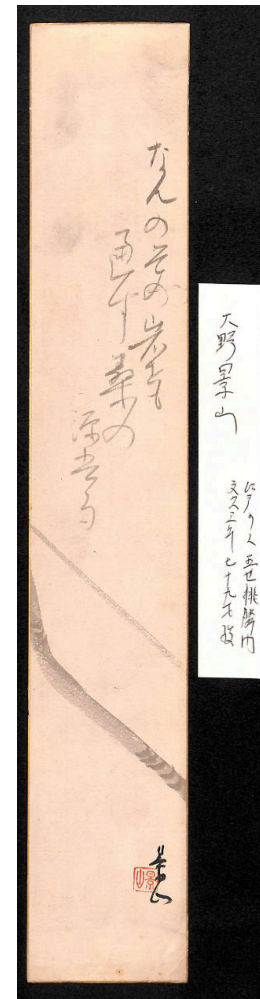 なんのその岩をも
通す桑の
弓
景山
景山
大野景山
江戸の人 五世桃隣門
文久三年七十九才歿